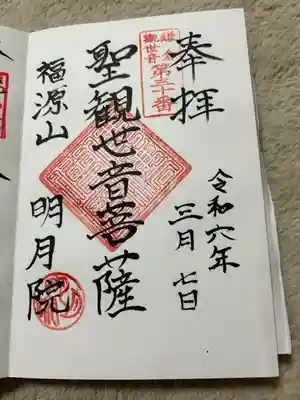 奉拝
鎌倉
観世音
第三十番
令和六年
三月七日
聖観世音菩薩
福源山
明月院